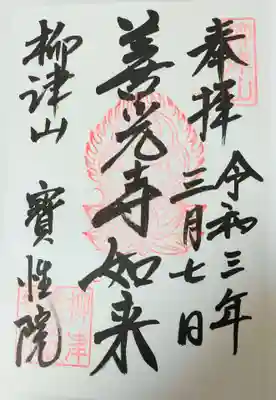 奉拝
令和三年
三月七日
善光寺如来
柳津山 寳性院
柳津